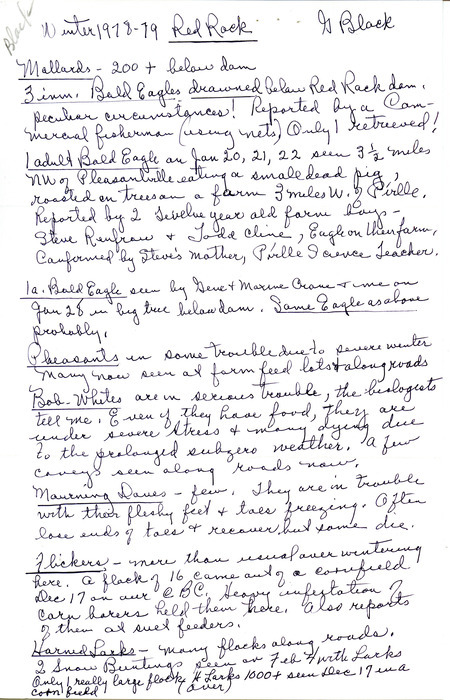 Black
Winter 1978-79 Red Rock G Black
Mallards - 200 + below dam
3 imm. Bald Eagles drowned below Red Rock dam.
peculiar circumstances! Reported by a Com-
mercial fisherman (using nets) Only 1 retrieved!
1 adult Bald Eagle on Jan 20, 21, 22 seen 3 1/2 miles
NW of Pleasantville eating a small dead pig,
roosted on trees on a farm 3 miles W. of P'ville.
Reported by 2 twelve year old farm boys -
Steve Renfrow & Todd Cline, Eagle on their farm,
Confirmed by Steve's Mother, P'ville Science Teacher.
1a. Bald Eagle seen by Gene & Maxine Crane & me on
Jan 28 in big tree below dam. Same Eagle as above
probably.
Pheasants in some trouble due to severe winter
Many now seen at farm feed lots & along roads
Bob-Whites are in serious trouble, the biologists
tell me. Even if they have food, they are
under severe stress & many dying due
to the prolonged subzero weather. A few
coveys seen along roads now.
Mourning Doves - few. They are in trouble
with their fleshy feet & toes freezing. Often
lose ends of toes & recover, but some die.
Flickers - more than usual over wintering
here. A flock of 16 came out of a cornfield
Dec 17 on our CBC, heavy infestation of
corn borers held them here. Also reports
of them at suet feeders.
Horned Larks - Many flocks along roads.
2 Snow Buntings seen on Feb 7 with Larks
Only 1 really large flock H Larks 1000+ seen Dec 17 in a
corn field (over)